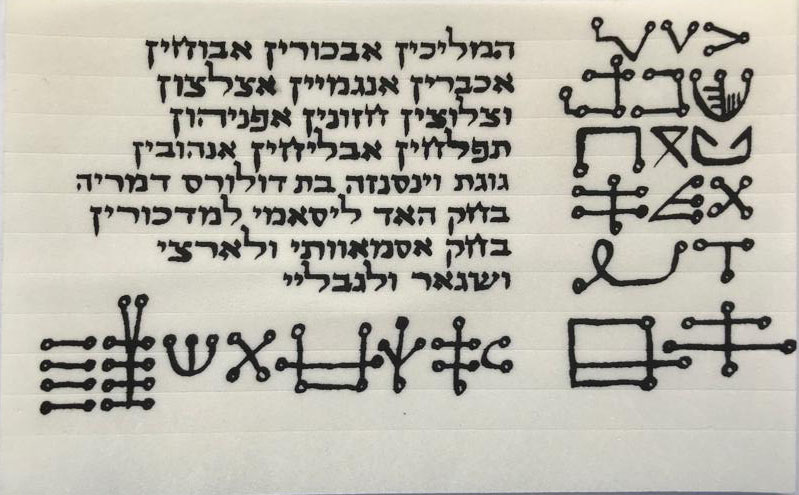 המליכין אבכורין אבוחזין
אכברין אנגמייין אצלצון
וצלוצין חזונין אפניהון
תפלחין אבליחזין אנהובין
גוגת וינסנזה בת דולורס דמריה
בחזק האד ליסאמי למדכורין
בחזק אסמאוותי ולארצי
ושגאר ולגבליי